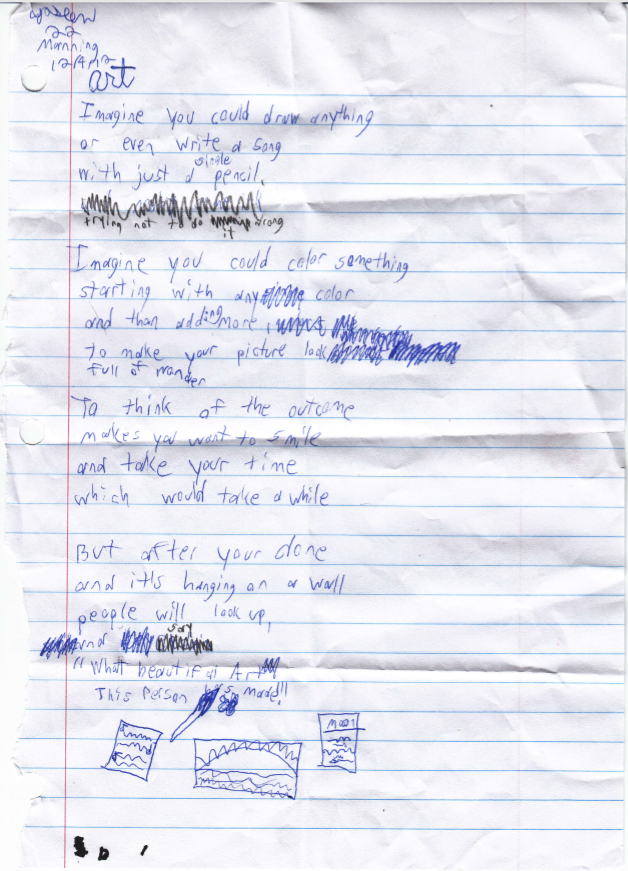 22
Manning
12/4/12
art
Imagine you could draw anything
or even write a song
with just a single pencil,
trying not to do it wrong
Imagine you could color something
starting with any color
and than adding more,
to make your picture look
full of wander
To think of the outcome
makes you want to smile
and take your time
which would take a while
But after your done
and it's hanging on a wall
people will look up,
and say
"What beautifal Art
This Person has made!!